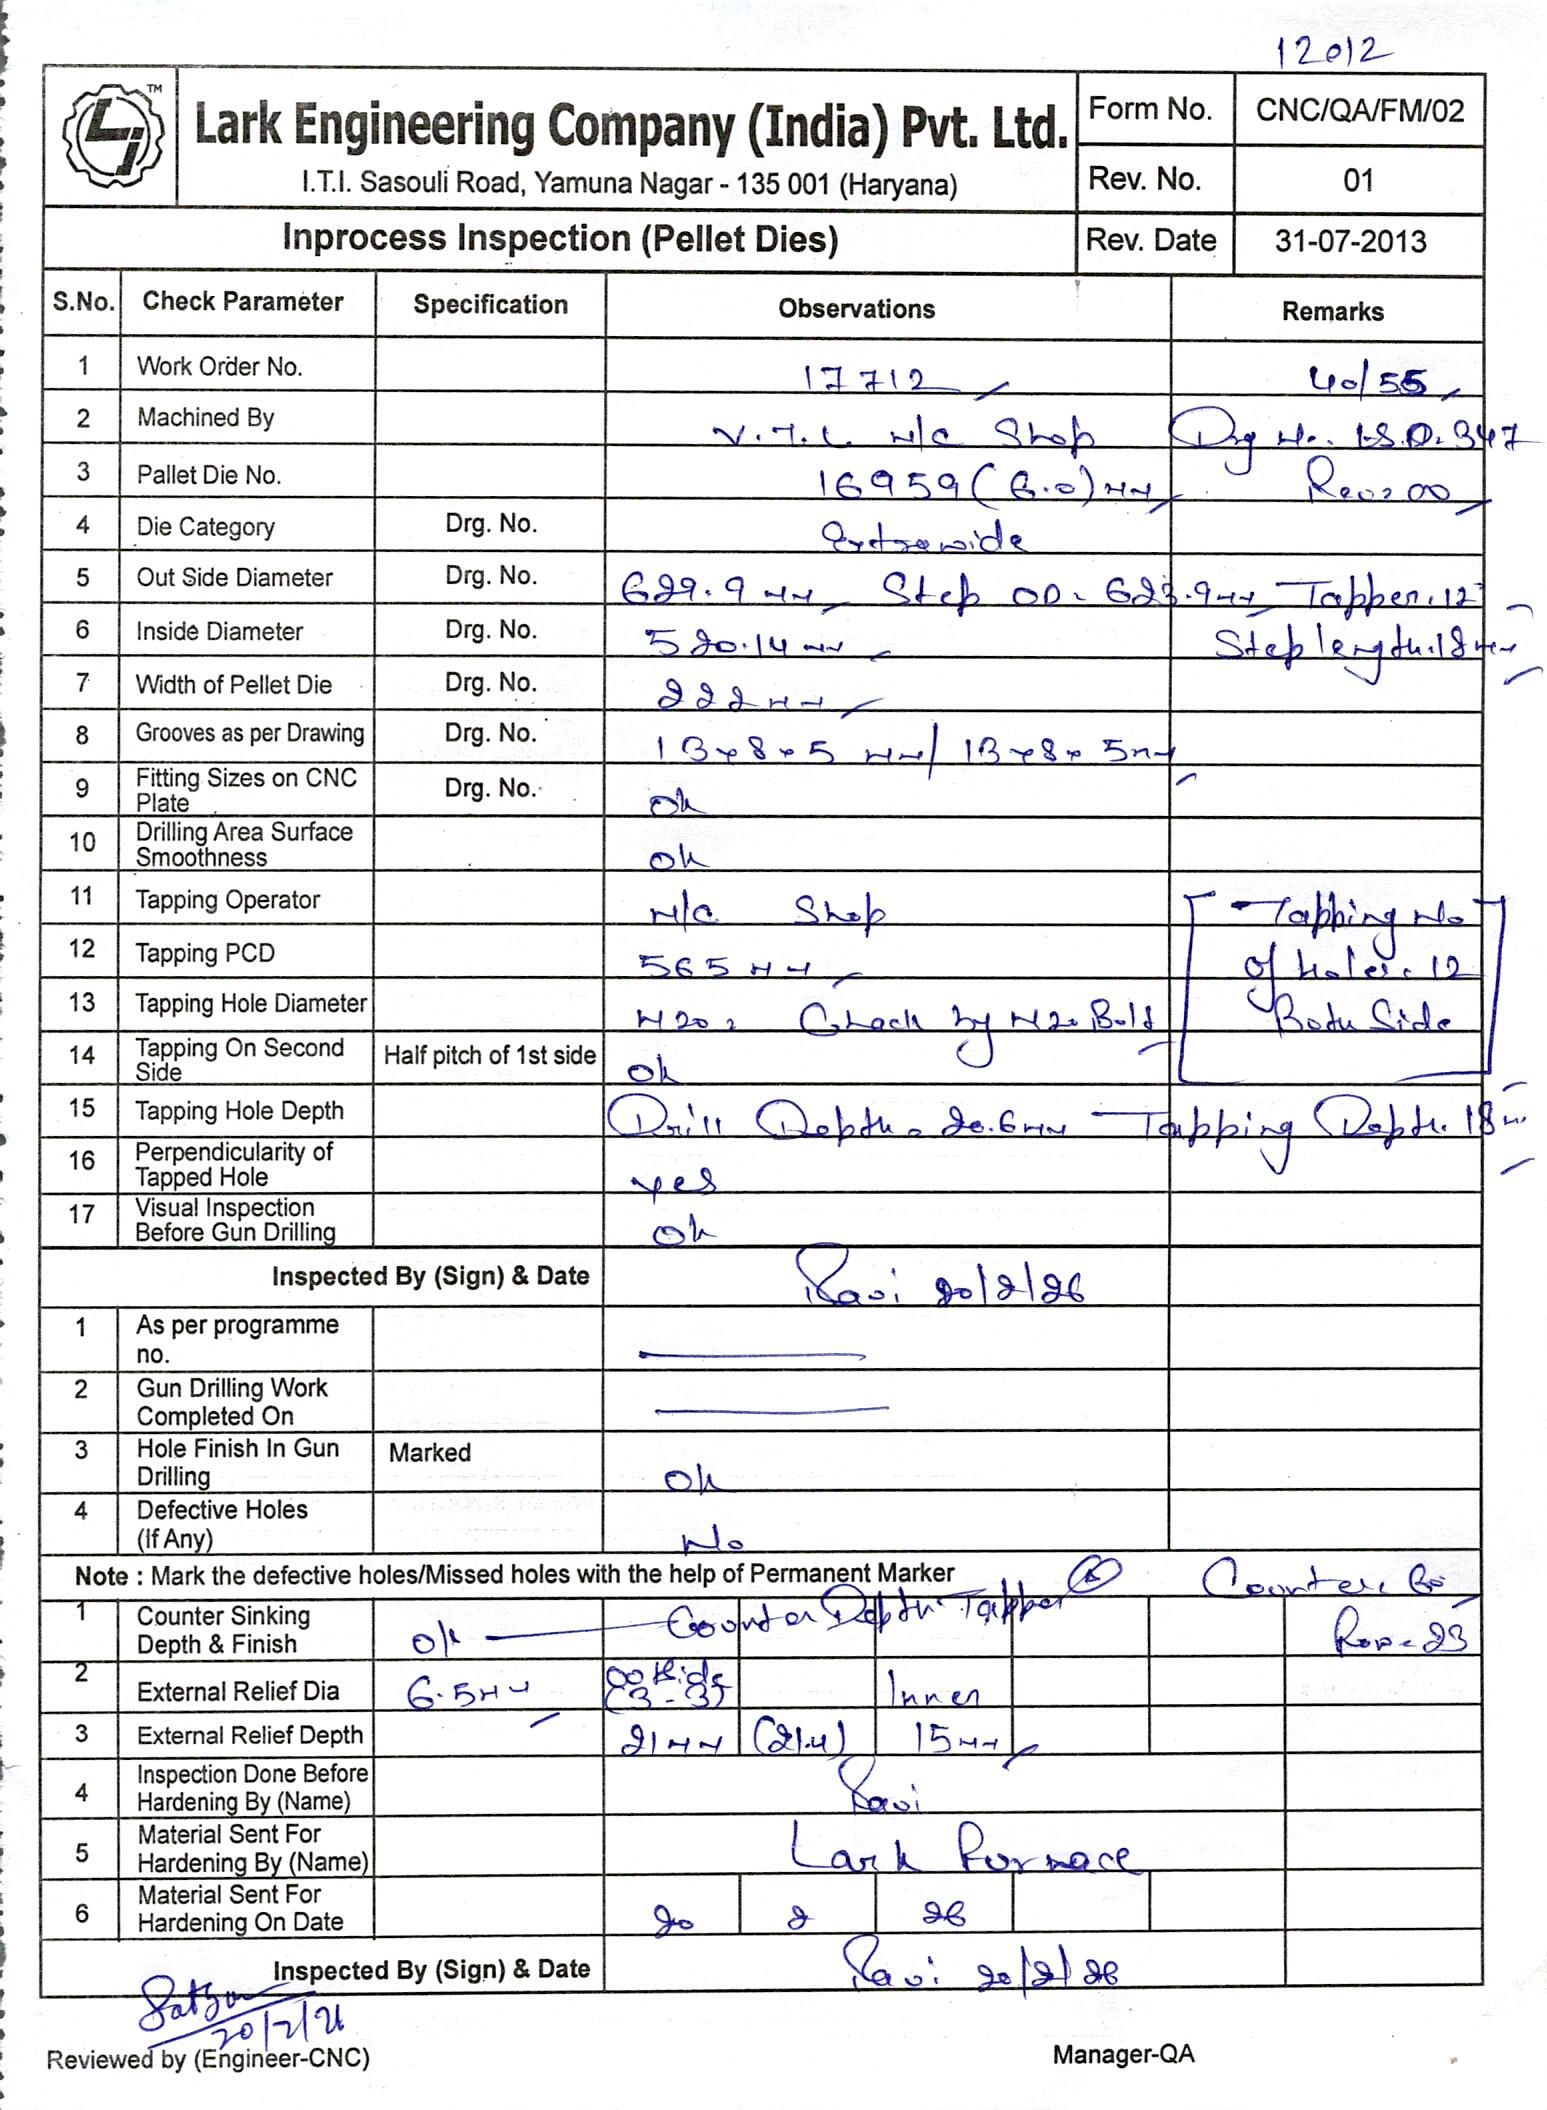 12012
TM
Lark Engineering Company (India) Pvt. Ltd.
I.T.I. Sasouli Road, Yamuna Nagar - 135 001 (Haryana)
Form No. CNC/QA/FM/02
Rev. No. 01
Inprocess Inspection (Pellet Dies) Rev. Date 31-07-2013
S.No. Check Parameter Specification Observations Remarks
1 Work Order No. 17712 40/55
2 Machined By V.T.L M/C Shop Drg No. L.S.D. 347
3 Pallet Die No. 16959 (6.0) mm Rev: 00
4 Die Category Drg. No. Extrawide
5 Out Side Diameter Drg. No. 629.9 mm Step OD- 623.9mm Tapper. 12
6 Inside Diameter Drg. No. 520.14 mm Step length. 18mm
7 Width of Pellet Die Drg. No. 222mm
8 Grooves as per Drawing Drg. No. 13x8x5 mm/ 13x8x5mm
9 Fitting Sizes on CNC Plate Drg. No. Ok
10 Drilling Area Surface Smoothness Ok
11 Tapping Operator M/C Shop Tapping No
12 Tapping PCD 565mm of holes. 12
13 Tapping Hole Diameter M20, Chack by M20 Bolt Both Side
14 Tapping On Second Side Half pitch of 1st side Ok
15 Tapping Hole Depth Drill Depth- 20.6mm Tapping Depth. 18mm
16 Perpendicularity of Tapped Hole yes
17 Visual Inspection Before Gun Drilling Ok
Inspected By (Sign) & Date Ravi 20/2/26
1 As per programme no.
2 Gun Drilling Work Completed On
3 Hole Finish In Gun Drilling Marked Ok
4 Defective Holes (If Any) No
Note : Mark the defective holes/Missed holes with the help of Permanent Marker Counter
1 Counter Sinking Depth & Finish Ok Counter Depth. Tapper
2 External Relief Dia 6.5mm (3-3) Inner
3 External Relief Depth 21mm (21.4) 15mm
4 Inspection Done Before Hardening By (Name) Ravi
5 Material Sent For Hardening By (Name) Lark Furnace
6 Material Sent For Hardening On Date 20 2 26
Inspected By (Sign) & Date Ravi 20/2/26
20/2/26
Reviewed by (Engineer-CNC) Manager-QA